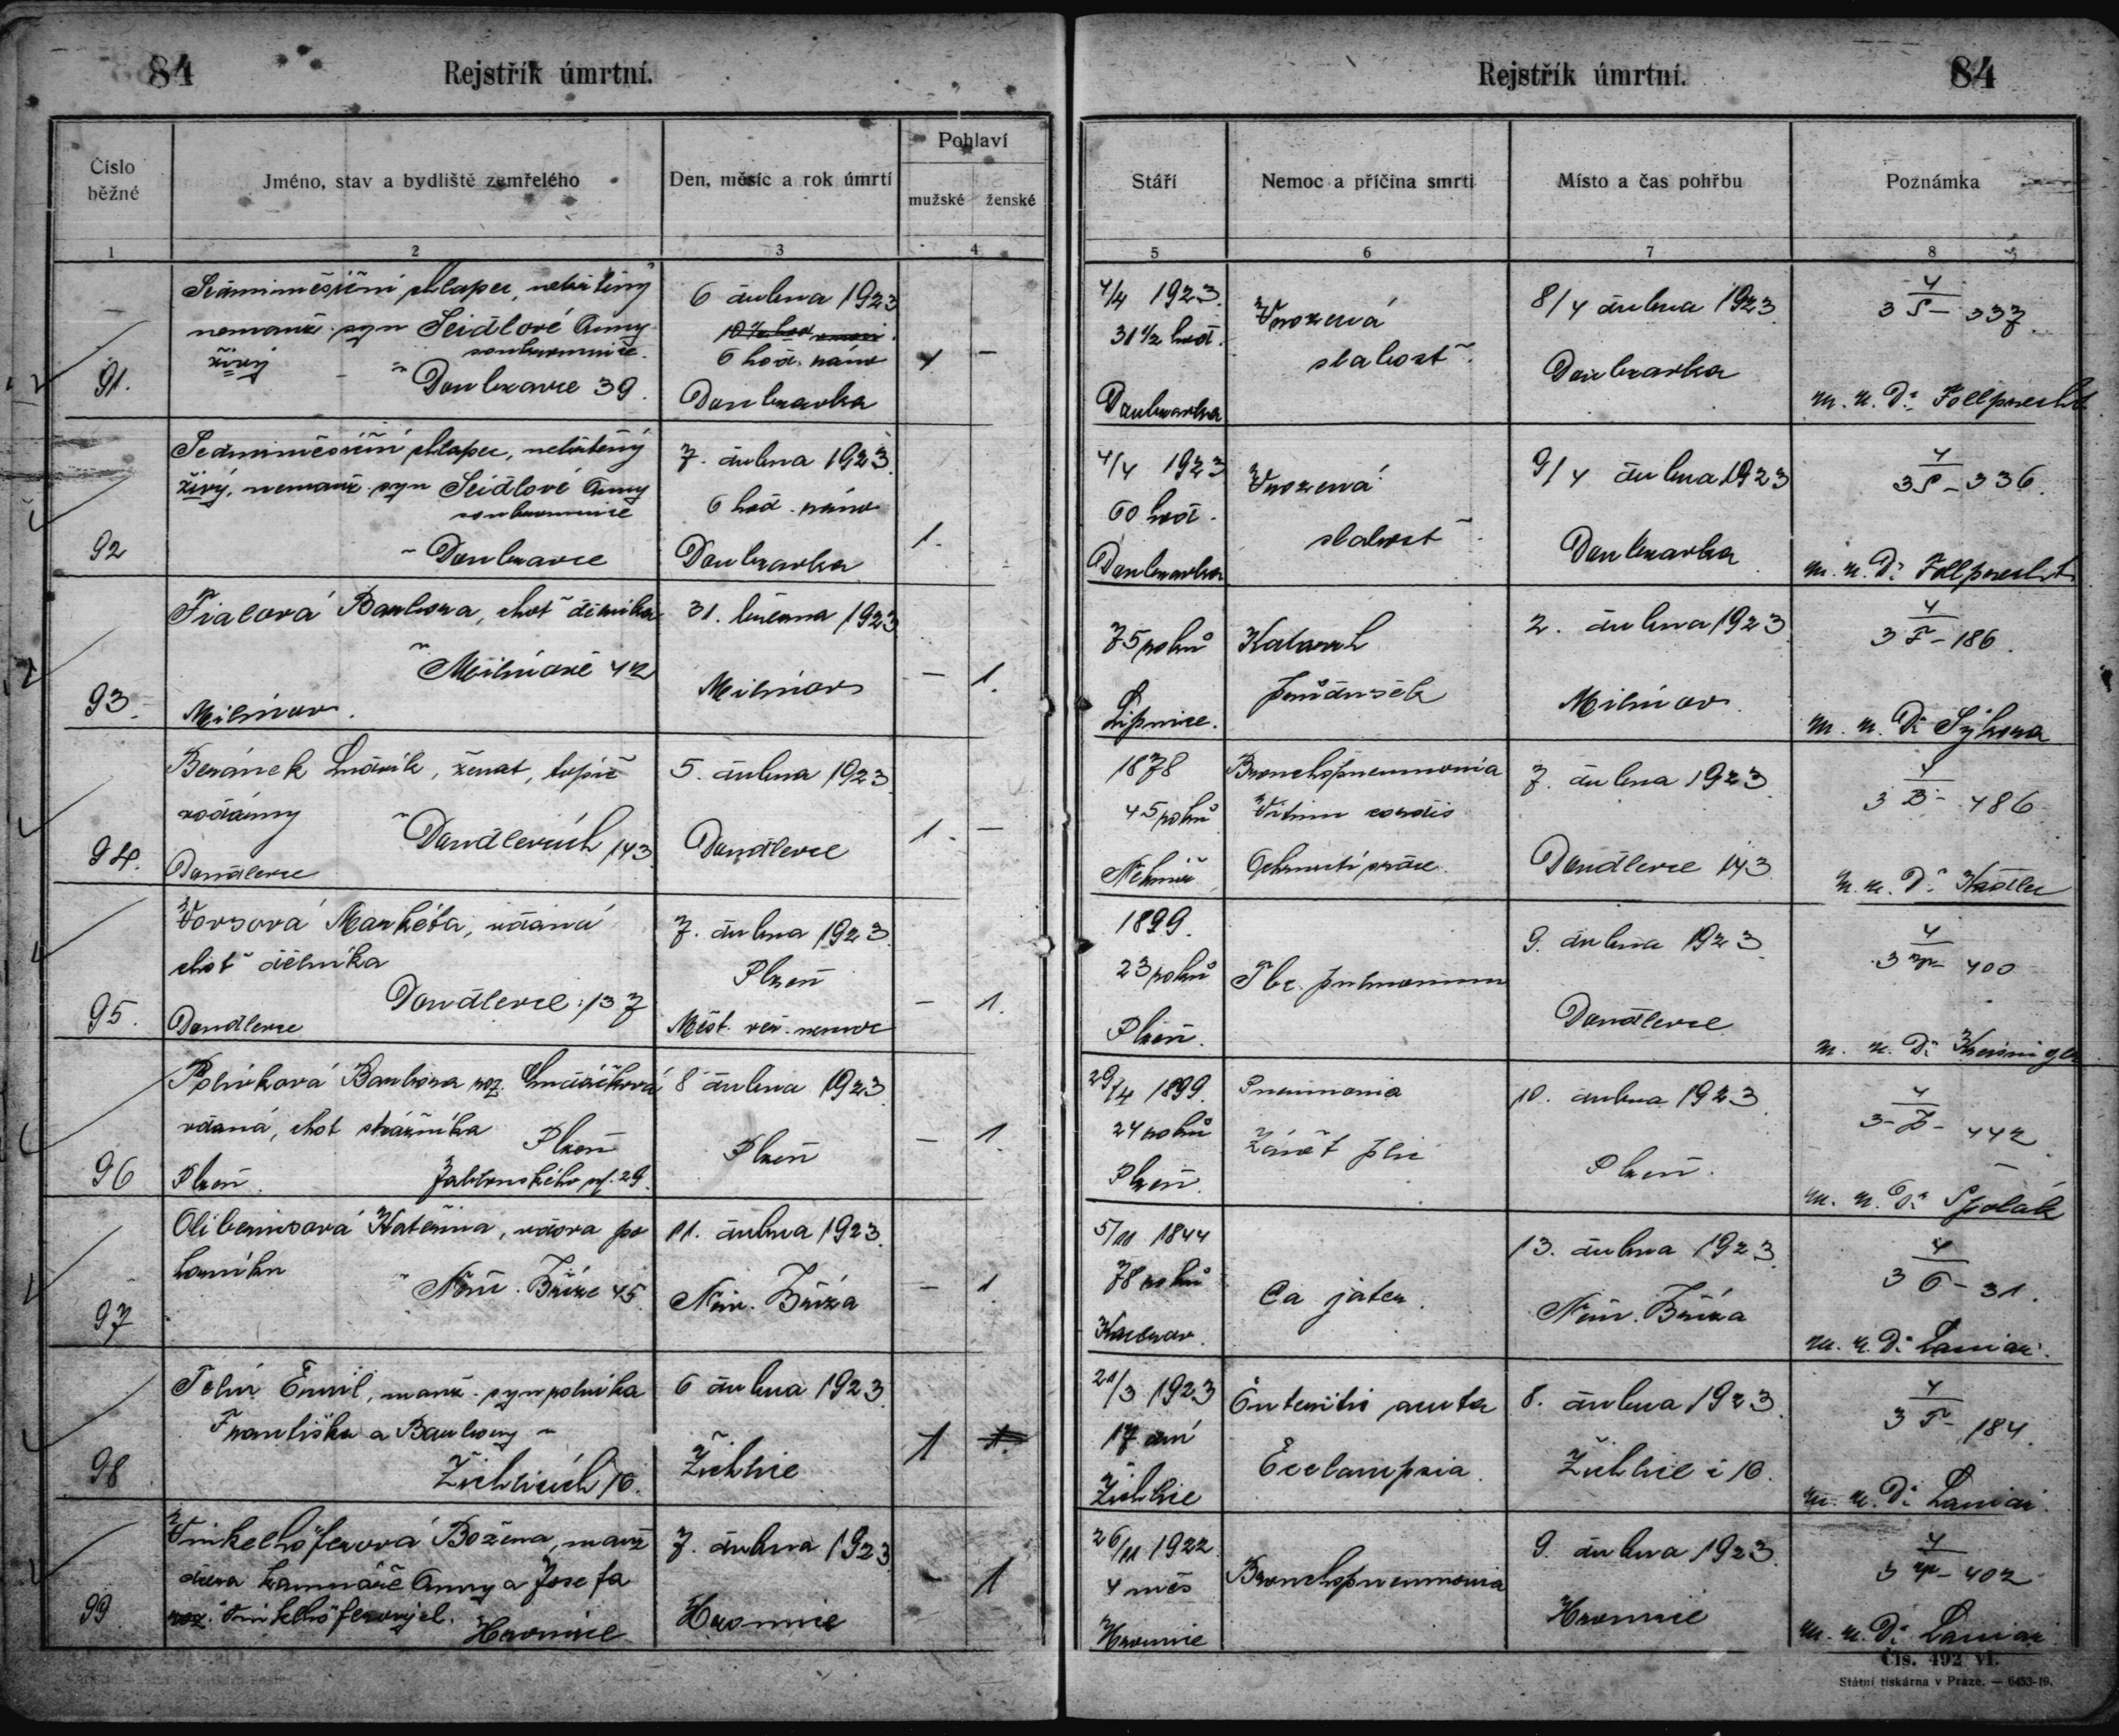 84
Rejstřík úmrtní.
Číslo běžné
Jméno, stav a bydliště zemřelého
Den, měsíc a rok úmrtí
Pohlaví
mužské
ženské
1
2
3
4
91.
Sedmiměsíční chlapec, nekřtěný
nemanž. syn Seidlové Anny
soukromnice
živý
v Doubravce 39.
6 dubna 1923
6 hod. ráno
Doubravka
1
–
92
Sedmiměsíční chlapec, nekřtěný
živý, nemanž. syn Seidlové Anny
soukromnice
v Doubravce
7. dubna 1923.
6 hod. ráno
Doubravka
1.
93.
Fialová Barbora, choť dělníka
v Milínově 42
Milínov.
31. března 1923
Milínov
–
1.
94.
Beránek Ludvík, ženat, topič
v Doudlevcích 143
Doudlevce
5. dubna 1923
Doudlevce
1.
–
95.
Vorsová Markéta, vdaná
choť dělníka
Doudlevce 137
Doudlevce
7. dubna 1923
Plzeň
Měst. veř. nemoc
–
1.
96
Barbora roz.
vdaná, choť strážníka
Plzeň
Plzeň.
Jablonského ul. 29.
8 dubna 1923
Plzeň
–
1.
97
Kateřina, vdova po
horníku
v Hor. Bříze 45.
11. dubna 1923.
Hor. Bříza
–
1.
98
Emil, manž. syn rolníka
Františka a Barbory v
Žichlicích 10.
6 dubna 1923
Žichlice
1
99
Vinkelhöferová Božena, manž
dcera Anny a Josefa
Vinkelhöferových.
Hromnice
7. dubna 1923
Hromnice
–
1
Rejstřík úmrtní.
84
Stáří
Nemoc a příčina smrti
Místo a čas pohřbu
Poznámka
5
6
7
8
4/4 1923.
31 1/2 hod.
Doubravka
Vrozená
slabost
8/4 dubna 1923
Doubravka
4
3 S – 337.
m. u. Dr. Follprecht
4/4 1923
60 hod.
Doubravka
Vrozená
slabost
9/4 dubna 1923
Doubravka
4
3 S – 336.
m. u. Dr. Follprecht
75 roků
Lipnice.
Katarrh
průdušek
2. dubna 1923
Milínov.
4
3 F – 186.
m. u. Dr. Sýkora
1878
45 roků
Bronchopneumonia
Vitium cordis
Ochrnutí srdce.
7. dubna 1923
Doudlevce 143
4
3 B – 486
m. u. Dr. Kadlec
1899.
23 roků
Plzeň.
Tbc. pulmonum
9. dubna 1923
Doudlevce
4
3 W – 400
m. u. Dr.
29/4 1899.
24 roků
Plzeň.
Pneumonia
Zánět plic
10. dubna 1923
Plzeň.
4
3 P – 442
m. u. Dr. Špolák
5/11 1844
78 roků
Kaceřov.
Ca jater.
13. dubna 1923.
Hor. Bříza
4
3 O – 31.
m. u. Dr.
21/3 1923
17 dní
Žichlice
Enteritis acuta
Eclampsia.
8. dubna 1923.
Žichlice č 10.
4
3 T – 184.
m. u. Dr.
26/11 1922
4 měs
Hromnice
Bronchopneumonia
9. dubna 1923.
Hromnice
4
3 W – 402
m. u. Dr.
Čís. 492 VI.
Státní tiskárna v Praze. — 6453-19.